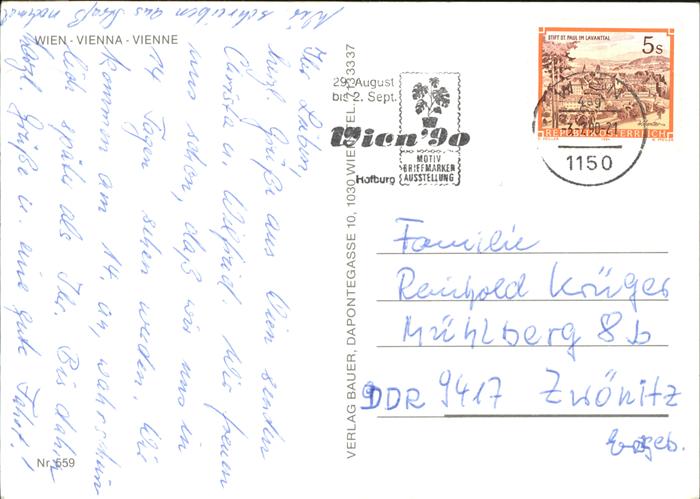 WIEN - VIENNA - VIENNE
Wir schreiben aus nochmal
Ihr Lieben,
herzl. Grüße aus Wien senden
Christa u. Wilfried. Wir freuen
uns schon, daß wir uns in
14 Tagen sehen werden. Wir
kommen am 14. an, wahrschein-
lich später als Ihr. Bis dahin
herzl. Grüße u. eine gute Fahrt!
Nr. 559
VERLAG BAUER, DAPONTEGASSE 10, 1030 WIEN, TEL. 713 33 37
29. August
bis 2. Sept.
Wien '90
Hofburg
MOTIV
BRIEFMARKEN
AUSSTELLUNG
STIFT ST. PAUL IM LAVANTTAL
5 S
REPUBLIK ÖSTERREICH
1150
Familie
Reinhold Krüger
Mühlberg 8b
DDR 9417 Zwönitz
Erzgeb.